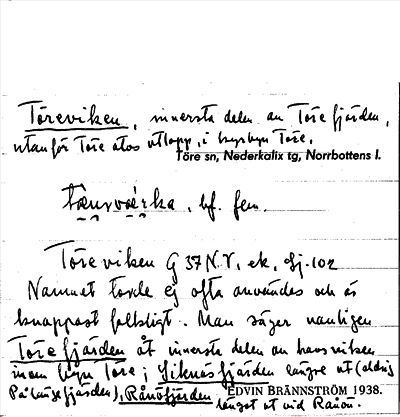 Töreviken, innersta delen av Törefjärden,
utanför Töre älvs utlopp, i kyrkbyn Töre.
Töre sn, Nederkalix tg, Norrbottens l.
bf. fem.
Töreviken G 37 N.V. ek. Sj. 102
Namnet torde ej ofta användas och är
knappast folkligt. Man säger vanligen
Törefjärden åt innersta delen av havsviken
inom byn Töre; Siknäsfjärden längre ut (aldrig
Pålängefjärden), Rånöfjärden
EDVIN BRÄNNSTRÖM 1938.
längst ut vid Rånön.